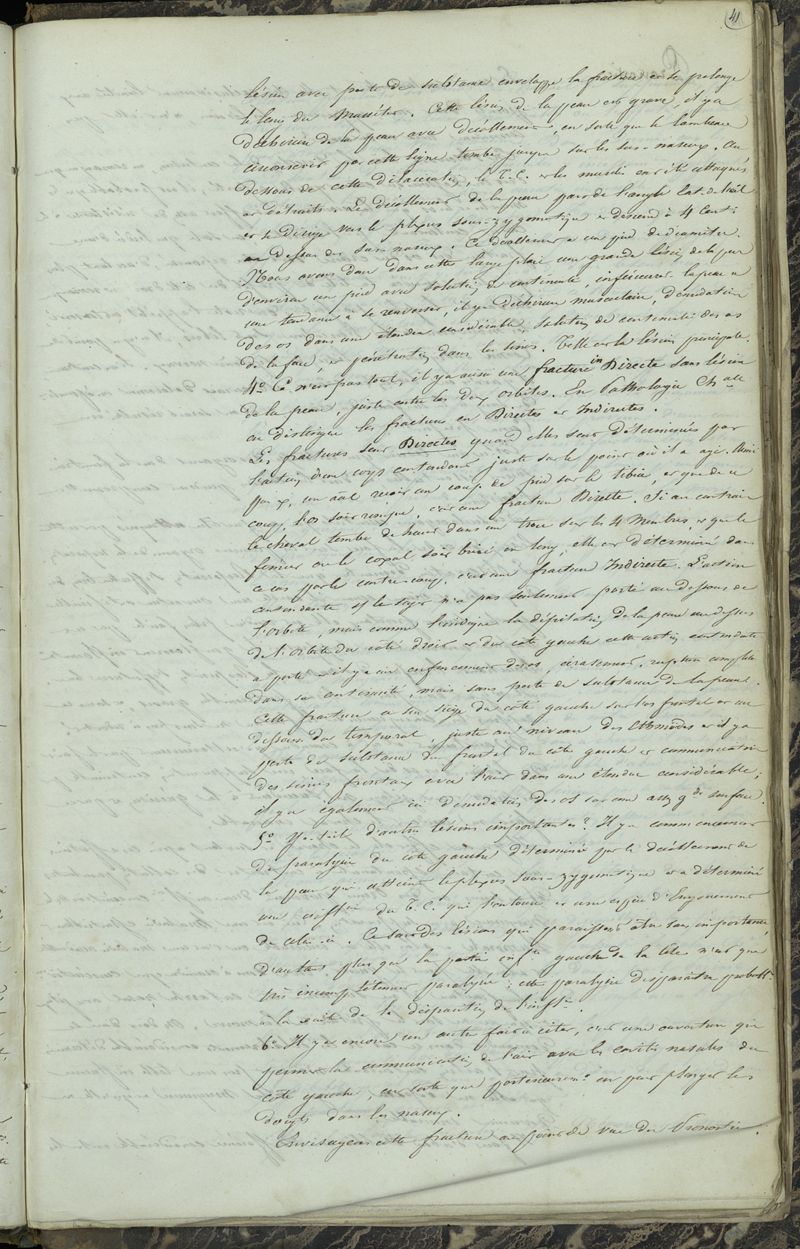 41
lésion avec perte de substance enveloppe la fracture et se prolonge
le long du Masséter. Cette lésion de la peau est grave, il y a
déchirure de la peau avec décollement, en sorte que le lambeau
circonscrit par cette ligne tombe jusque sur les sus-naseaux. Au
dessous de cette dilacération, le T.C. et les muscles ont été attaqués
et détruits. Le décollement de la peau part de l'angle lat. de l'œil
et se dirige vers le plexus sous-zygomatique et descend à 4 Cent:
au dessus des sus-naseaux. Ce décollement a un pied de diamètre.
Nous avons donc dans cette large plaie une grande lésion de la peau
d'environ un pied avec solution de continuité, inférieure la peau a
une tendance à se renverser, il y a déchirure musculaire, dénudation
des os dans une étendue considérable, solution de continuité des os
de la face, et pénétration dans les sinus. Telle est la lésion principale.
4º Ce n'est pas tout, il y a aussi une fracture inDirecte sans lésion
de la peau, juste entre les deux orbites. En Pathologie Chale
on distingue les fractures en Directes et Indirectes.
Les fractures sont Directes quand elles sont déterminées par
l'action d'un corps contondant juste sur le point où il a agi. Ainsi
par ex. un aal reçoit un coup de pied sur le tibia, et que de ce
coup, l'os soit rompu, c'est une fracture Directe. Si au contraire
le cheval tombe de haut dans un trou sur les 4 Membres et que le
fémur ou le coxal soit brisé en long, elle est déterminée dans
ce cas par le contre-coup, c'est une fracture Indirecte. L'action
contondante et le sujet n'a pas seulement porté au dessous de
l'orbite, mais comme l'indique la dépilation de la peau au dessus
de l'orbite du côté droit et du côté gauche cette action contondante
a porté et il y a eu enfoncement des os, écrasement, rupture complète
dans sa continuité, mais sans perte de substance de la peau.
Cette fracture a son siège du côté gauche sur l'os frontal et au
dessous du temporal, juste au niveau des Ethmoïdes et il y a
perte de substance du frontal du côté gauche et communication
des sinus frontaux avec l'air dans une étendue considérable;
il y a également ici dénudation des os sur une assez gde surface.
5º Y a-t-il d'autres lésions importantes? Il y a commencement
de paralysie du côté gauche déterminée par le décollement de
la peau qui atteint le plexus sous-zygomatique et a déterminé
une du T.C. qui l'entoure et une espèce d'Engouement
de celui-ci. Ce sont des lésions qui paraissent être sans importance,
d'autant plus que la partie infre gauche de la tête n'est que
très incomplètement paralysée; cette paralysie disparaîtra probabt
à la suite de la disparition de l'infltn.
6º Il y a encore un autre fait à citer, c'est une ouverture qui
permet la communication de l'air avec les cavités nasales du
côté gauche, en sorte que postérieuremt on peut plonger les
doigts dans les naseaux.
Envisageons cette fracture au point de vue du Pronostic.